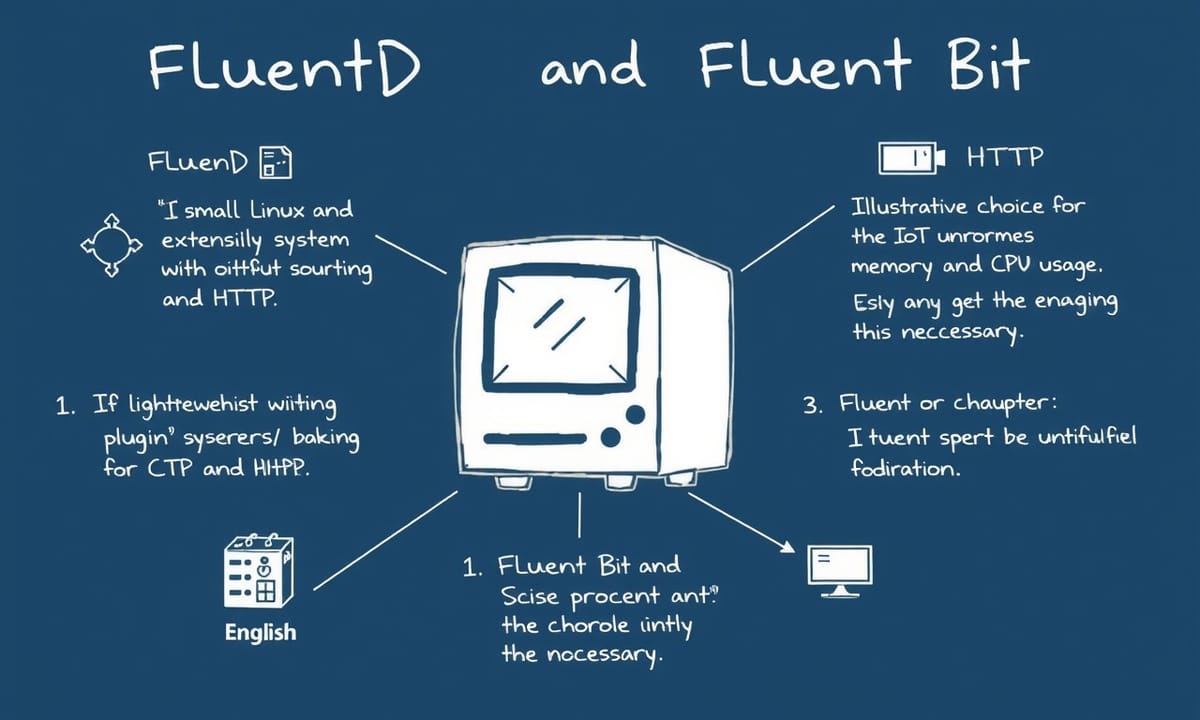 FLuentD and FLuent Bit
FLuenD
"I small Linux and
extensilly system
with oittfut sourting
and HTTP.
HTTP
Illustrative choice for
the IoT unrormes
memory and CPU usage.
Esly any get the enaging
this neccessary.
1. If lightrewehist wiiting
plugin" syserers/ baking
for CTP and HHPP.
3. Fluent or chaupter:
I tuent spert be untifulfiel
fodiration.
English
1. FLuent Bit and
Scise procent ant?"
the chorole iintly
the nocessary.